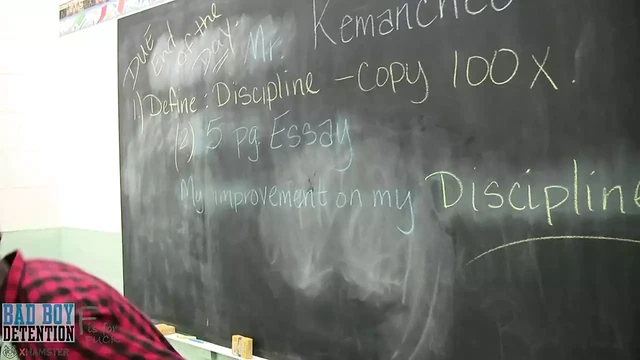 DUE
End
of the
Day.
Mr. Kemancheo
1) Define: Discipline - copy 100 x.
(2) 5 pg. Essay
My improvement on my Discipline
BAD BOY
DETENTION
F is for
FUCK
XHAMSTER